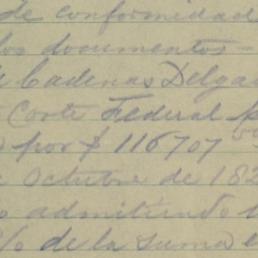 de conformidad
los documentos -
Cadenas Delga
Corte Federal
por $ 116707
Octubre de 182
admitiendo
% de la suma